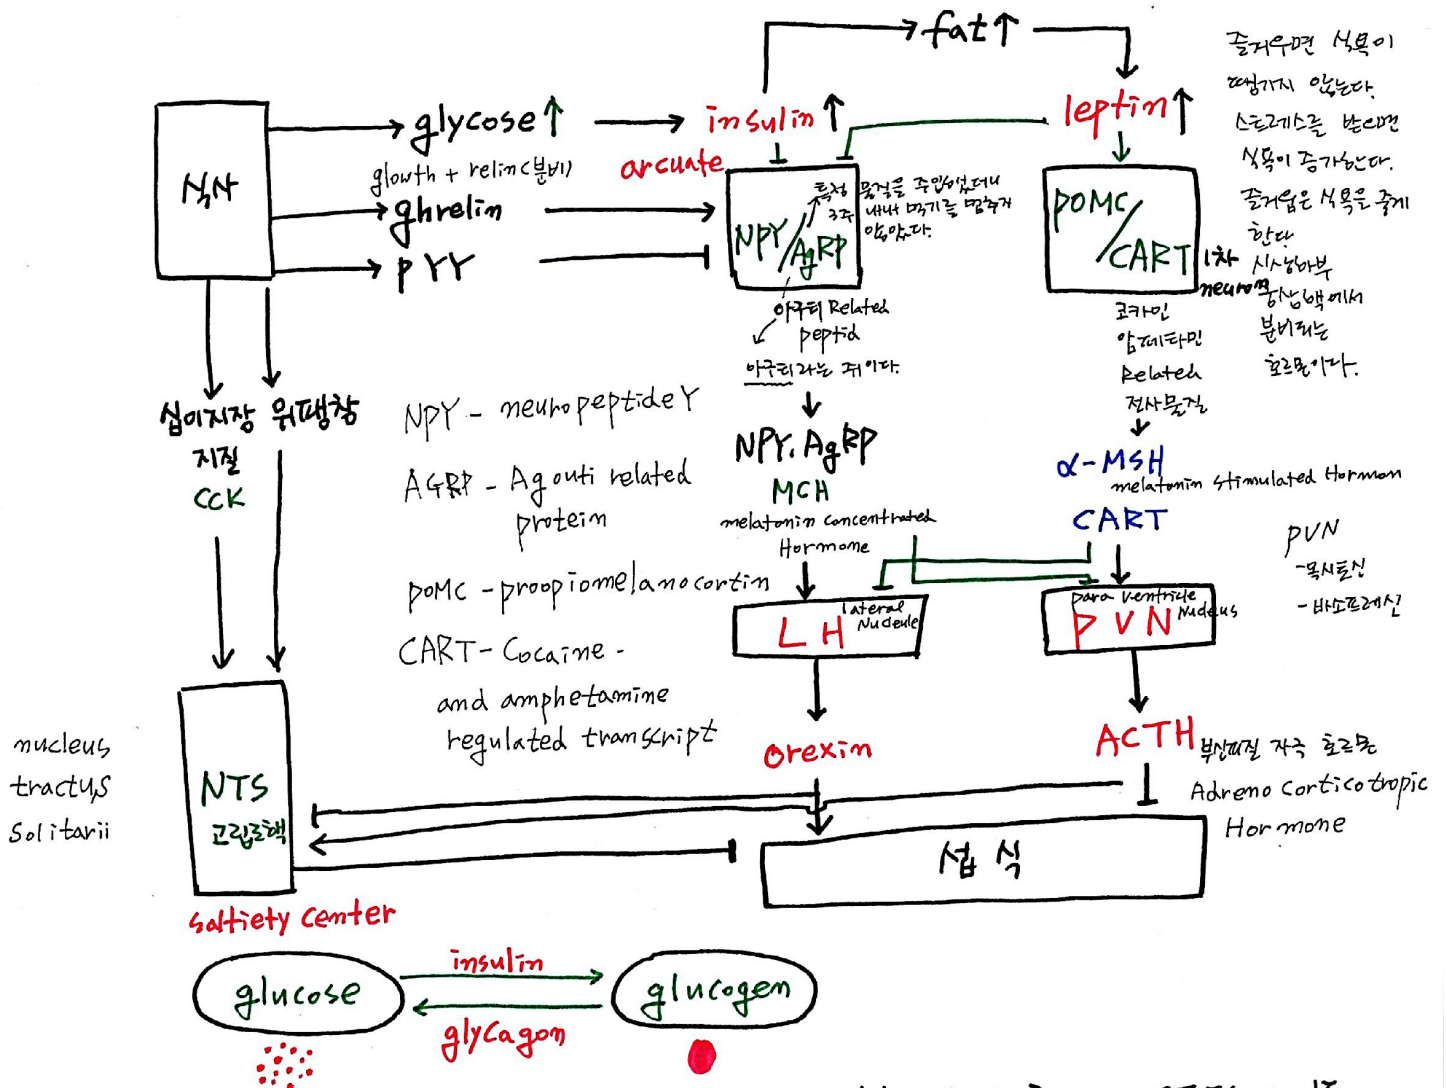 fat↑
식사
glycose↑
insulin↑
leptin↑
glowth + relin(분비)
ghrelin
PYY
arcuate
NPY/AgRP
특정 물질을 주입했더니
3주 내내 먹기를 멈추지
않았다.
POMC/CART
1차
neuron
즐거우면 식욕이
땡기지 않는다.
스트레스를 받으면
식욕이 증가한다.
즐거움은 식욕을 줄게
한다
시상하부
궁상핵에서
분비되는
호르몬이다.
아구티 Related
peptid
아구티라는 쥐이다.
코카인
암페타민
Related
전사물질
십이지장
지질
CCK
위팽창
NPY - neuropeptide Y
AGRP - Agouti related
protein
POMC - proopiomelanocortin
CART - Cocaine -
and amphetamine
regulated transcript
NPY. AgRP
MCH
melatonin concentrated
Hormone
α-MSH
melatonin stimulated Hormon
CART
PVN
-옥시토신
-바소프레신
LH
lateral
Nucleule
para ventricle
Nucleus
PVN
orexin
ACTH
부신피질 자극 호르몬
Adreno corticotropic
Hormone
nucleus
tractus
Solitarii
NTS
고립로핵
섭식
saltiety center
glucose
insulin
glycagon
glucogen